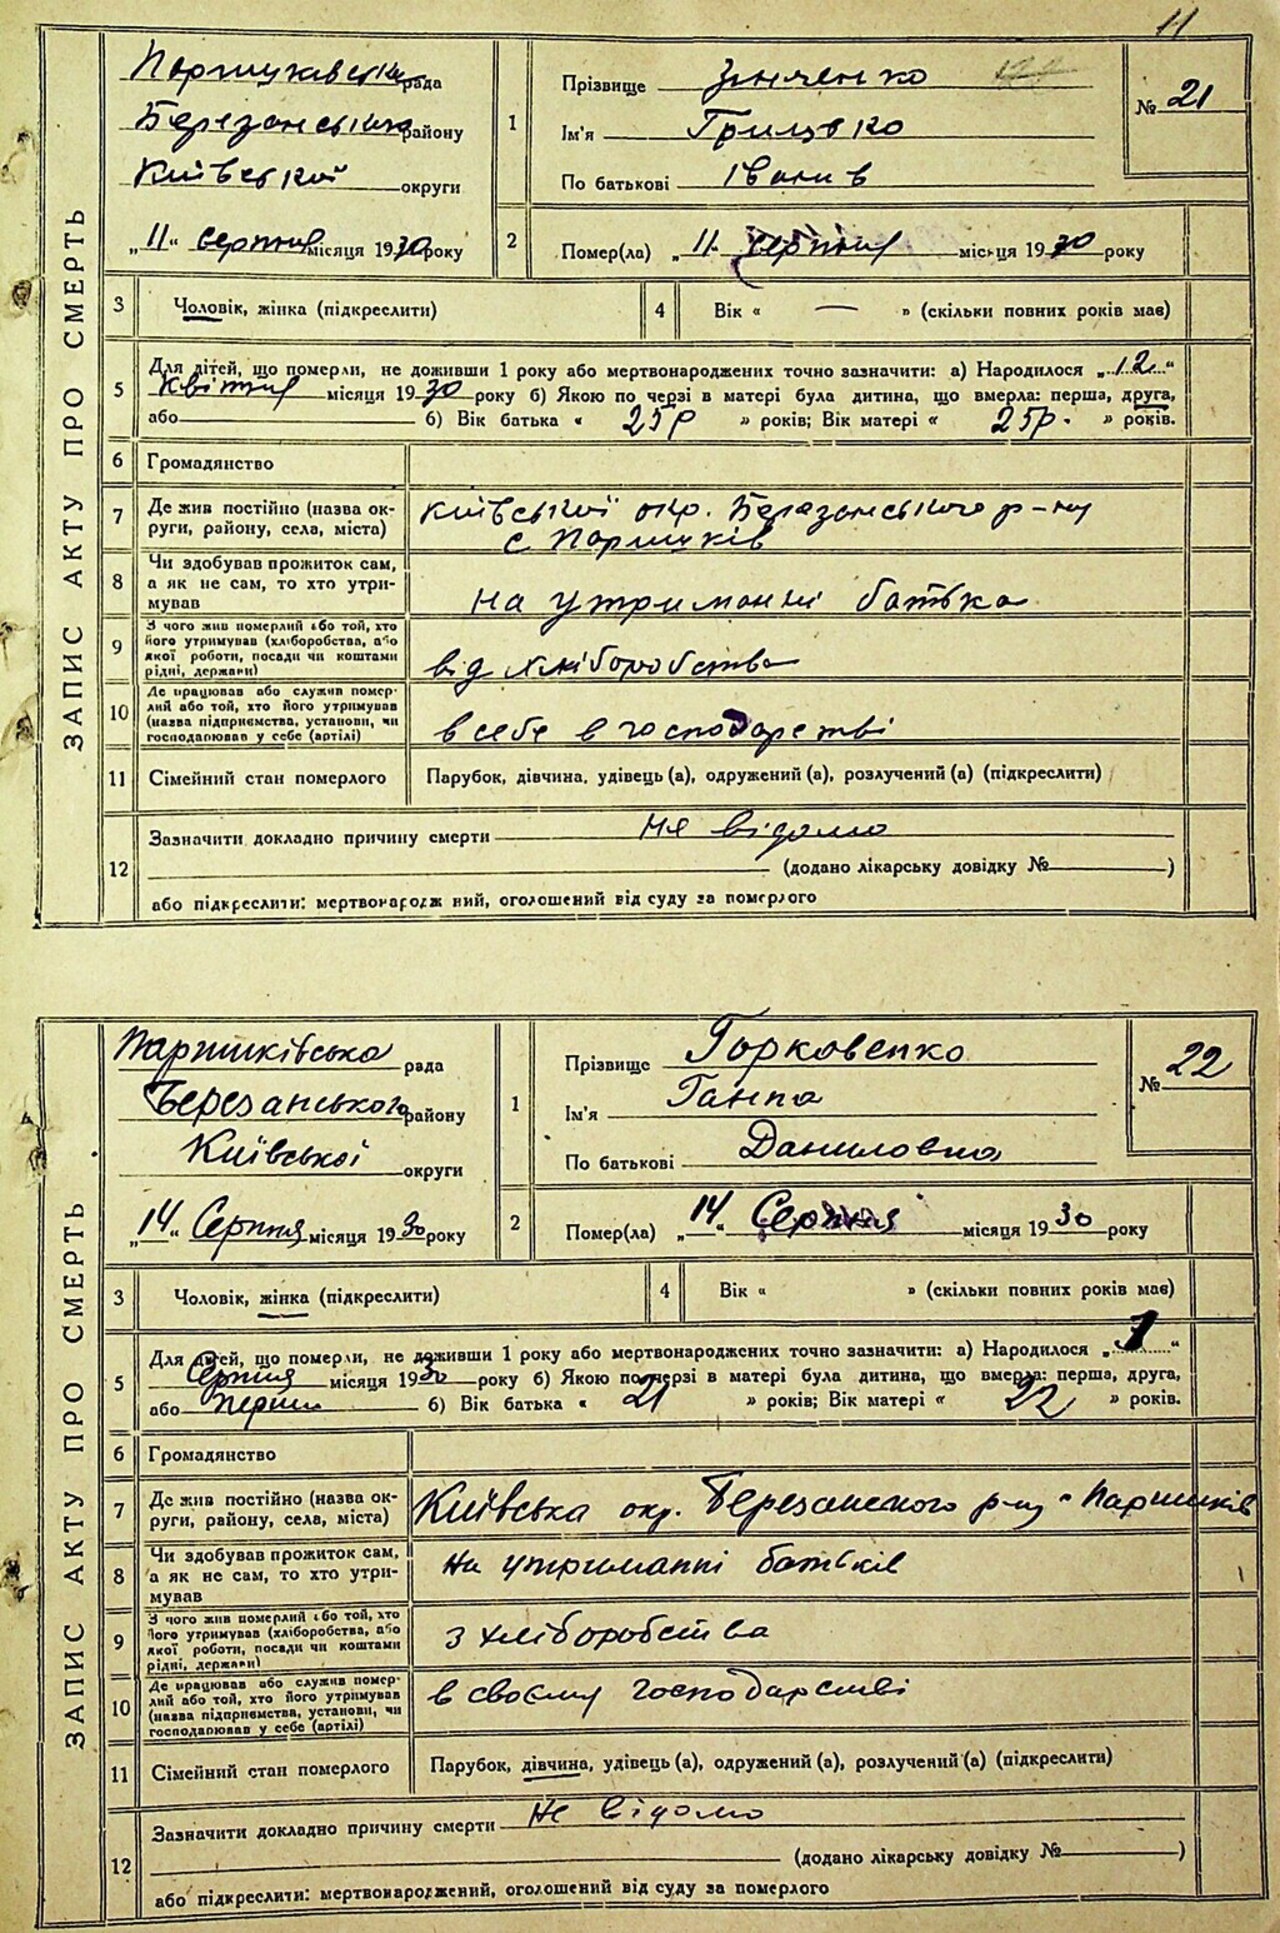 11
ЗАПИС АКТУ ПРО СМЕРТЬ
рада
Березанського району
Київської округи
„11“ серпня місяця 1930 року
1
Прізвище Зінченко
Ім'я Грицько
По батькові Іванів
№ 21
2
Помер(ла) „11“ серпня місяця 1930 року
3
Чоловік, жінка (підкреслити)
4
Вік « — » (скільки повних років має)
5
Для дітей, що померли, не доживши 1 року або мертвонароджених точно зазначити: а) Народилося „12“
квітня місяця 1930 року б) Якою по черзі в матері була дитина, що вмерла: перша, друга,
або б) Вік батька « 25р » років; Вік матері « 25р. » років.
6
Громадянство
7
Де жив постійно (назва ок-
руги, району, села, міста)
Київської окр. Березанського р-ну
с Паришків
8
Чи здобував прожиток сам,
а як не сам, то хто утри-
мував
на утриманні батька
9
З чого жив померлий або той, хто
його утримував (хліборобства, або
якої роботи, посади чи коштами
рідні, держави)
від хліборобства
10
Де працював або служив помер-
лий або той, хто його утримував
(назва підприємства, установи, чи
господарював у себе (артілі)
в себе в господарстві
11
Сімейний стан померлого
Парубок, дівчина, удівець (а), одружений (а), розлучений (а) (підкреслити)
12
Зазначити докладно причину смерти не відомо
(додано лікарську довідку № )
або підкреслити: мертвонародж ний, оголошений від суду за померлого
ЗАПИС АКТУ ПРО СМЕРТЬ
Паришківська рада
Березанського району
Київської округи
„14“ Серпня місяця 1930 року
1
Прізвище Горковенко
Ім'я Ганна
По батькові Даниловна
№ 22
2
Помер(ла) „14“ Серпня місяця 1930 року
3
Чоловік, жінка (підкреслити)
4
Вік « » (скільки повних років має)
5
Для дітей, що померли, не доживши 1 року або мертвонароджених точно зазначити: а) Народилося „1“
Серпня місяця 1930 року б) Якою по черзі в матері була дитина, що вмерла: перша, друга,
або перша б) Вік батька « 21 » років; Вік матері « 22 » років.
6
Громадянство
7
Де жив постійно (назва ок-
руги, району, села, міста)
Київська окр. Березанского р-ну с Паришків
8
Чи здобував прожиток сам,
а як не сам, то хто утри-
мував
на утриманні батьків
9
З чого жив померлий або той, хто
його утримував (хліборобства, або
якої роботи, посади чи коштами
рідні, держави)
з хліборобства
10
Де працював або служив помер-
лий або той, хто його утримував
(назва підприємства, установи, чи
господарював у себе (артілі)
в своєму господарстві
11
Сімейний стан померлого
Парубок, дівчина, удівець (а), одружений (а), розлучений (а) (підкреслити)
12
Зазначити докладно причину смерти не відомо
(додано лікарську довідку № )
або підкреслити: мертвонароджений, оголошений від суду за померлого